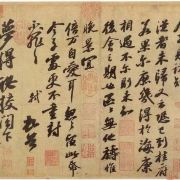 從者未歸又云恐已到桂府
若果爾庶幾得於海康
相遇不爾則未知
後會之期也區區無他禱惟
晚景宜
倍萬自愛耳忽忽留此帋
令子處更不重封不罪
不罪 軾 頓首
夢得秘校閣下